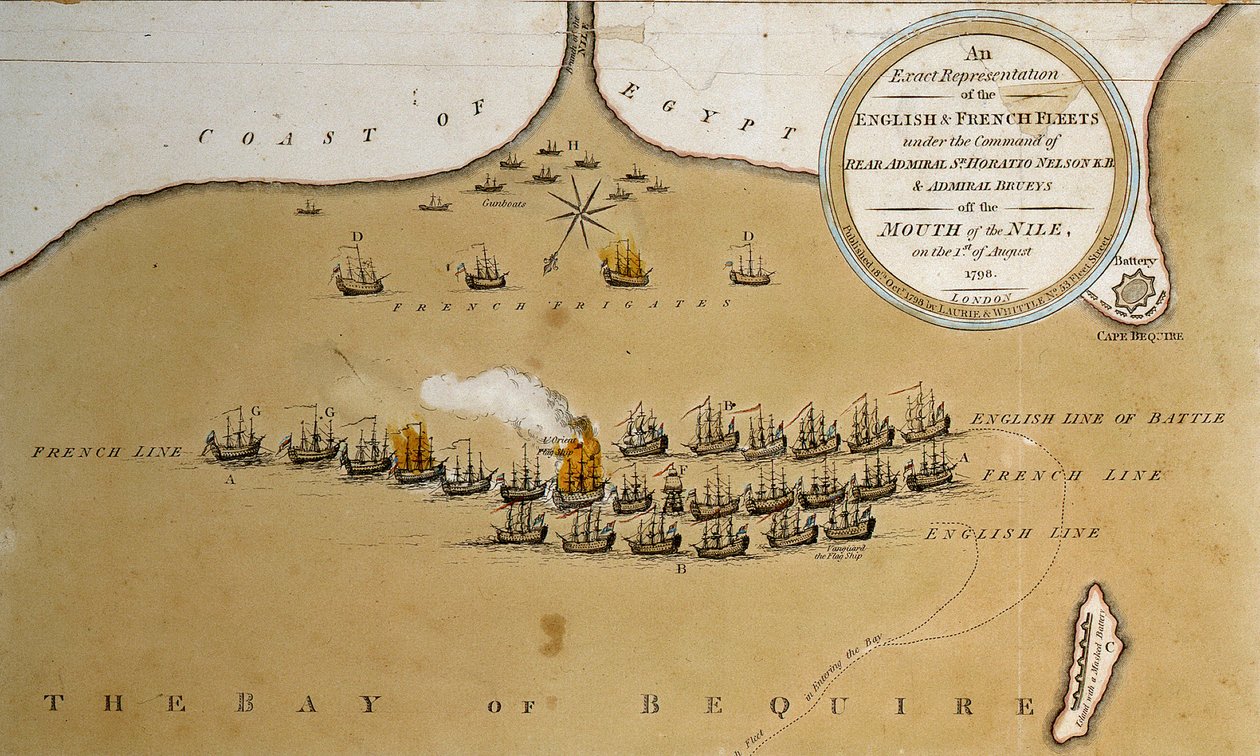 Branch of the
NILE
COAST OF EGYPT
An
Exact Representation
of the
ENGLISH & FRENCH FLEETS
under the Command of
REAR ADMIRAL SR. HORATIO NELSON K.B.
& ADMIRAL BRUEYS
off the
MOUTH of the NILE,
on the 1.st of August
1798.
LONDON
Published 18th Octr. 1798 by LAURIE & WHITTLE No. 53 Fleet Street.
H
Gunboats
D
D
FRENCH FRIGATES
Battery
CAPE BEQUIRE
G
G
B
ENGLISH LINE OF BATTLE
L'Orient
Flag Ship
FRENCH LINE
A
F
A
FRENCH LINE
ENGLISH LINE
Vanguard
the Flag Ship
B
in Entering the Bay
Fleet
Island with a Masked Battery
C
THE BAY OF BEQUIRE